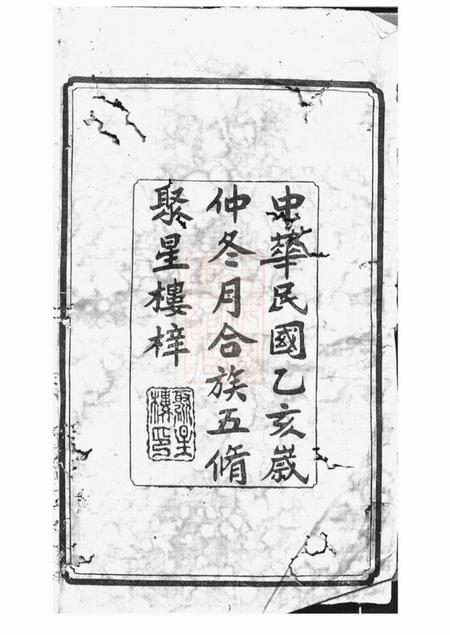 中華民國乙亥歲
仲冬月合族五脩
聚星樓梓
聚星樓印